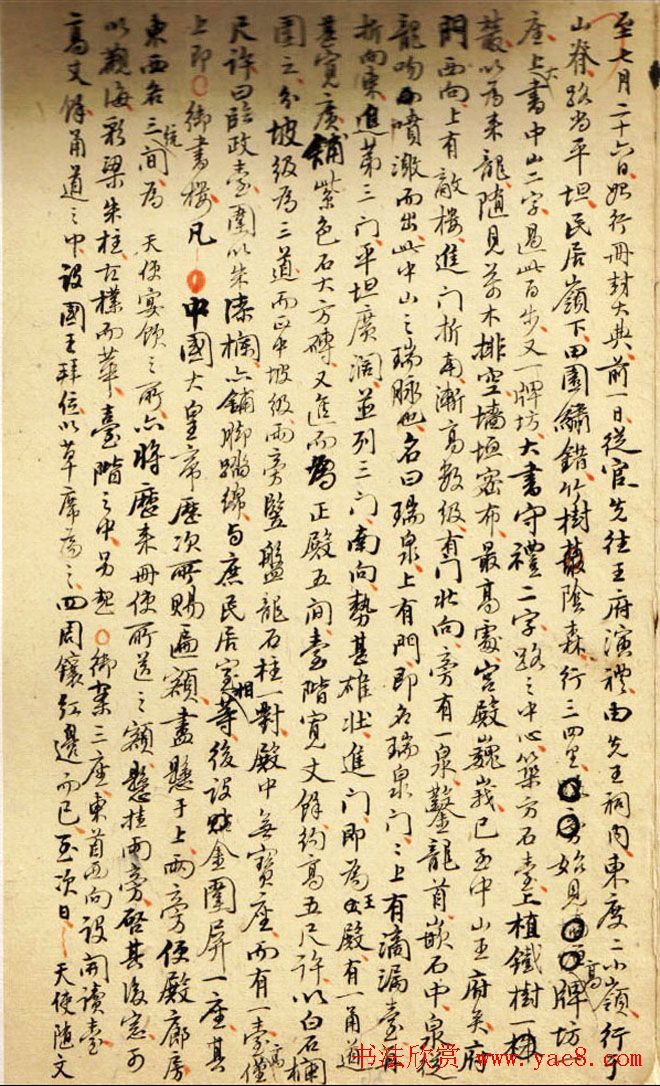 至七月二十六日,始行冊封大典,前一日,從官先往王府演禮,由先王祠內東度二小嶺,行于
山脊,路尚平坦,民居嶺下,田園繡錯,竹樹叢陰森,行三四里,始見高牌坊
座,上大書中山二字,過此百步,又一牌坊,大書守禮二字,路之中心,築方石臺,上植鐵樹一株
叢,以為來龍,隨見喬木排空,墻垣密布,最高處宮殿巍峩,已至中山王府矣,府
門西向,上有敵樓,進門折南,漸高數級,有門北向,旁有一泉,鑿龍首嵌石中,泉從
龍吻噴激而出,此中山之瑞脉也,名曰瑞泉,上有門,即名瑞泉門,門上有滴漏臺,再
折向東,進第三門,平坦廣濶,並列三門,南向,勢甚雄壯,進門即為王殿,有一甬道
甚寬廣,鋪紫色石大方磚,又進而為正殿五間,臺階寬丈餘,約高五尺許,以白石欄
圍之,分坡級為三道,而正中坡級兩旁豎盤龍石柱一對,殿中無寶座,而有一臺,僅高
尺許,曰臨政臺,圍以朱漆欄,亦鋪脚踏綿,與庶民居室相等,後設貼金圍屏一座,其
上即御書樓,凡中國大皇帝歷次所賜匾額,盡懸于上,兩旁便殿廊房
東西各三間,為天使宴飲之所,亦將歷來冊使所送之額,懸挂兩旁,啓其後窓,可
以觀海,彩梁朱柱,古樸而華,臺階之中,另起御案三座,東首西向設開讀臺
高丈餘,甬道之中,設國王拜位,以草席為之,四周鑲紅邊而已,至次日,天使隨文
书法欣赏 www.yac8.com